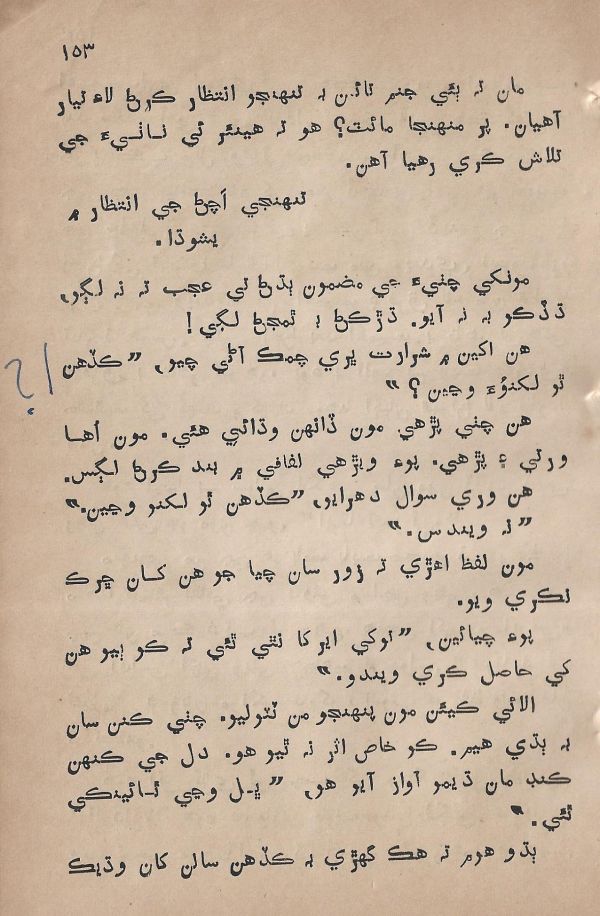 ١٥٣
مان تہ ٻئي جنم تائين بہ تنهنجو انتظار ڪرڻ لاءِ تيار
آهيان. پر منهنجا مائٽ؟ هو تہ هينئر ئي ناٺيءَ جي
تلاش ڪري رهيا آهن.
تنهنجي اَچڻ جي انتظار ۾
يشوڌا.
مونکي چٺيءَ جي مضمون ٻڌڻ تي عجب تہ نہ لڳو،
ڌڏڪو بہ نہ آيو. ڌڙڪڻ ۽ ٿمجڻ لڳي!
هن اکين ۾ شرارت ڀري چمڪ آڻي چيو، ”ڪڏهن
ٿو لکنؤءَ وڃين؟“
هن چٺي پڙهي مون ڏانهن وڌائي هئي. مون اُها
ورتي ۽ پڙهي. پوءِ ويڙهي لفافي ۾ بند ڪرڻ لڳس.
هن وري سوال دهرايو، ”ڪڏهن ٿو لکنو وڃين.“
”نہ ويندس.“
مون لفظ اهڙي تہ زور سان چيا جو هن کان ڇرڪ
نڪري ويو.
پوءِ چيائين، ”توکي ايرکا نٿي ٿئي تہ ڪو ٻيو هن
کي حاصل ڪري ويندو.“
الائي ڪيئن مون پنهنجو من ٽٽوليو. چٺي ڪنن سان
بہ ٻڌي هيم. ڪو خاص اثر نہ ٿيو هو. دل جي ڪنهن
ڪنڊ مان ڌيمو آواز آيو هو، ”ڀل وڃي ٿائينڪي
ٿئي.“
ٻڌو هوم تہ هڪ گهڙي بہ ڪڏهن سالن کان وڌيڪ